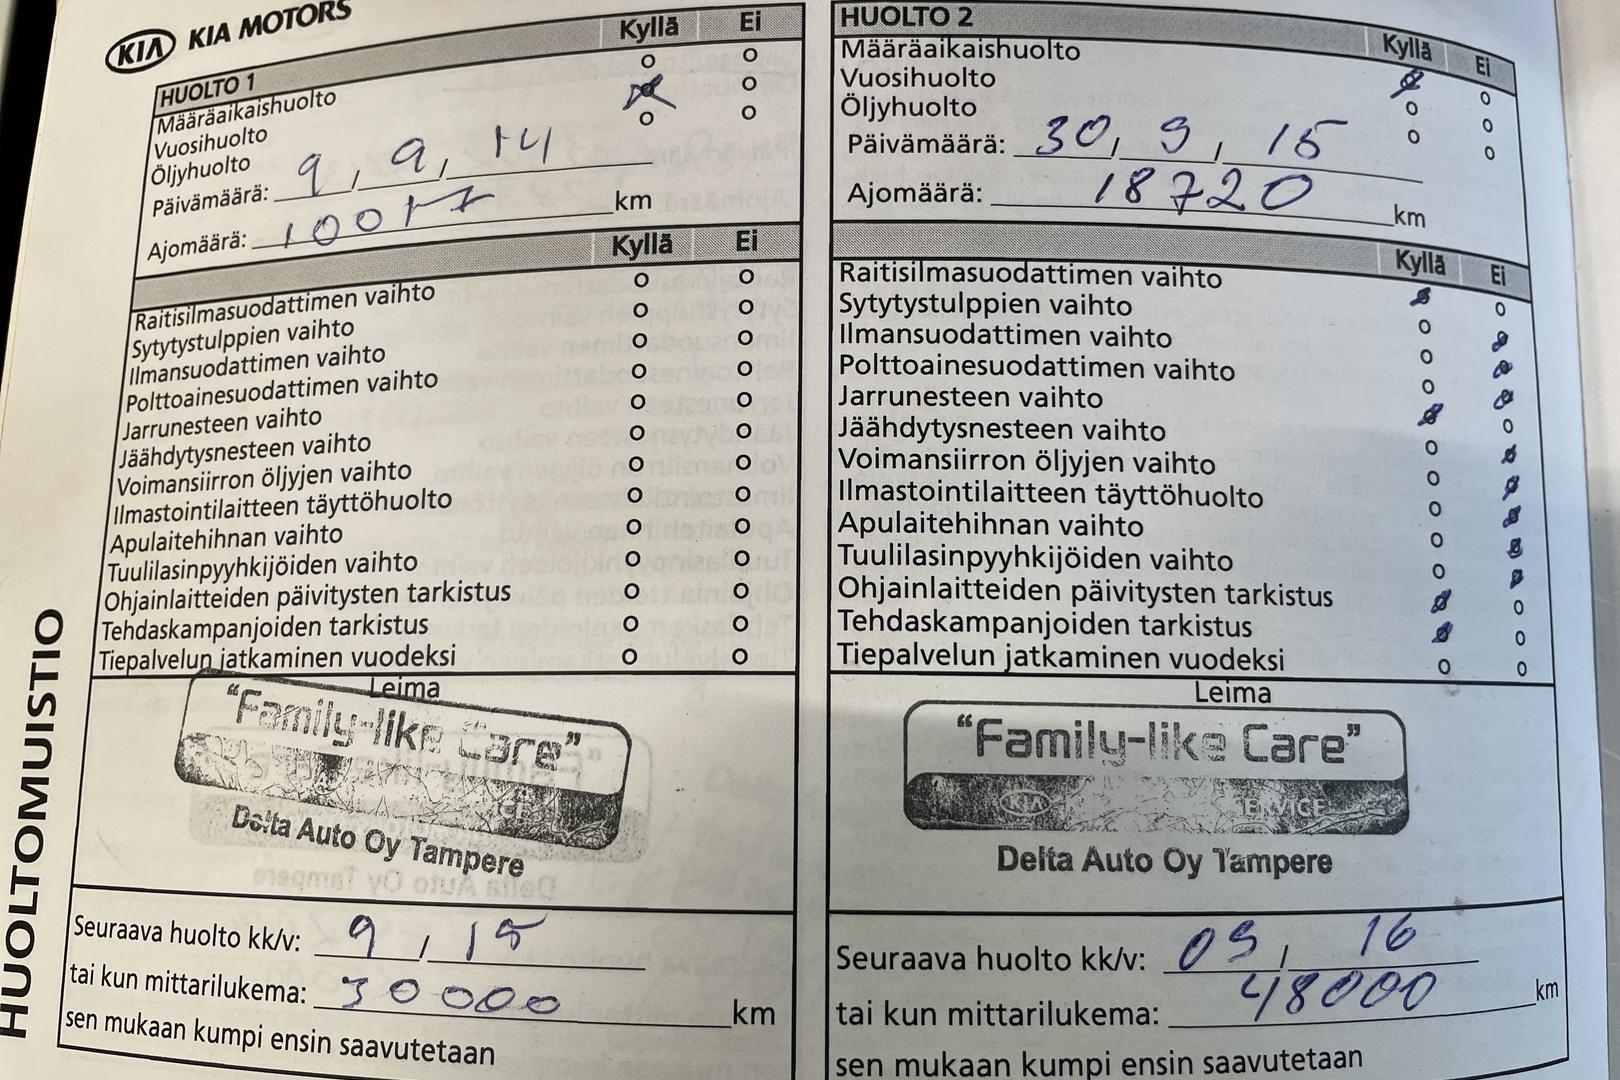 KIA KIA MOTORS
HUOLTOMUISTIO
HUOLTO 1 Kyllä Ei
Määräaikaishuolto
Vuosihuolto
Öljyhuolto
Päivämäärä: 9, 9, 14
Ajomäärä: 10017 km
Kyllä Ei
Raitisilmasuodattimen vaihto
Sytytystulppien vaihto
Ilmansuodattimen vaihto
Polttoainesuodattimen vaihto
Jarrunesteen vaihto
Jäähdytysnesteen vaihto
Voimansiirron öljyjen vaihto
Ilmastointilaitteen täyttöhuolto
Apulaitehihnan vaihto
Tuulilasinpyyhkijöiden vaihto
Ohjainlaitteiden päivitysten tarkistus
Tehdaskampanjoiden tarkistus
Tiepalvelun jatkaminen vuodeksi
Leima
"Family-like Care"
Delta Auto Oy Tampere
Seuraava huolto kk/v: 9 / 15
tai kun mittarilukema: 30000 km
sen mukaan kumpi ensin saavutetaan
HUOLTO 2 Kyllä Ei
Määräaikaishuolto
Vuosihuolto
Öljyhuolto
Päivämäärä: 30, 9, 15
Ajomäärä: 18720 km
Kyllä Ei
Raitisilmasuodattimen vaihto
Sytytystulppien vaihto
Ilmansuodattimen vaihto
Polttoainesuodattimen vaihto
Jarrunesteen vaihto
Jäähdytysnesteen vaihto
Voimansiirron öljyjen vaihto
Ilmastointilaitteen täyttöhuolto
Apulaitehihnan vaihto
Tuulilasinpyyhkijöiden vaihto
Ohjainlaitteiden päivitysten tarkistus
Tehdaskampanjoiden tarkistus
Tiepalvelun jatkaminen vuodeksi
Leima
"Family-like Care"
KIA SERVICE
Delta Auto Oy Tampere
Seuraava huolto kk/v: 09 / 16
tai kun mittarilukema: 48000 km
sen mukaan kumpi ensin saavutetaan